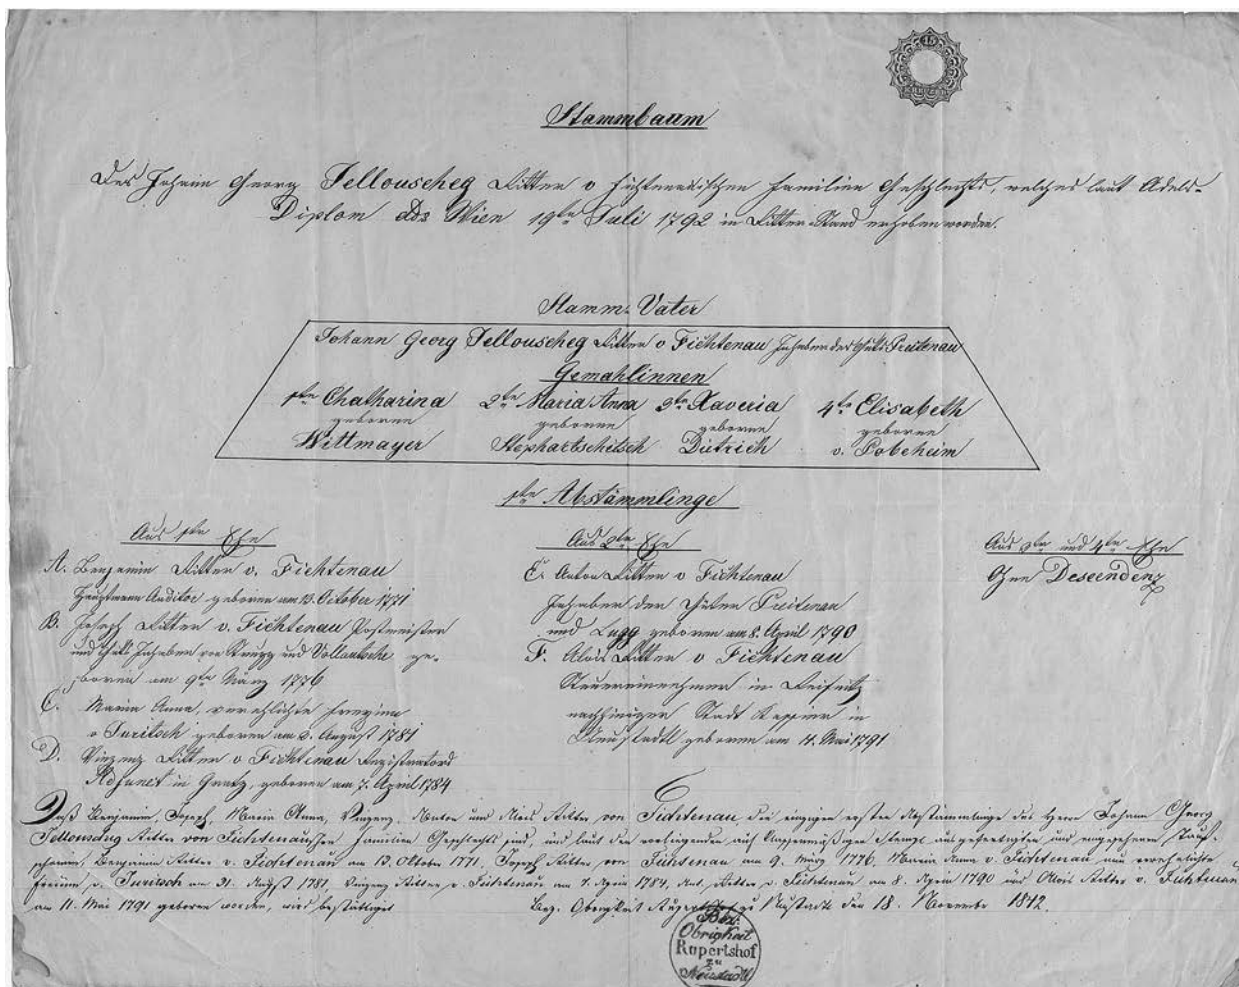 15
Stammbaum
Des Johann Georg Jellouscheg Ritter v Fichtenau'schen Familien Geschlechts, welches laut Adels-
Diplom ddo Wien 19ten Juli 1792 in Ritter-Stand erhoben worden.
Stamm-Vater
Johann Georg Jellouscheg Ritter v Fichtenau Inhaber des Guts Preitenau
Gemahlinnen
1te Chatharina 2te Maria Anna 3te Xaveria 4te Elisabeth
geborne geborne geborne geborne
Wittmayer Stephartschitsch Dietrich v. Pobeheim
1te Abstämmlinge
Aus 1ter Ehe
A. Benjamin Ritter v. Fichtenau
Hauptmann Auditor geboren am 13. October 1771
B. Joseph Ritter v. Fichtenau Postmeister
und Guts Inhaber von Strugg und Vollautsche ge-
boren am 9te März 1776
C. Maria Anna, verehlichte Freyinn
v Juritsch geboren am 3. August 1781
D. Vinzenz Ritter v Fichtenau Registraturs
Adjunct in Gratz, geboren am 7. April 1784
Aus 2ter Ehe
E. Anton Ritter v Fichtenau
Inhaber der Güter Preitenau
und Lugg geboren am 8. April 1790
F. Alois Ritter v Fichtenau
Steuereinnehmer in Reifnitz
nachheriger Stadt Kassier in
Neustadtl geboren am 11. Mai 1791
Aus 3ter und 4ter Ehe
Ohne Descendenz
Daß Benjamin, Joseph, Maria Anna, Vinzenz, Anton und Alois Ritter von Fichtenau die einzigen ersten Abstämmlinge des Herrn Johann Georg
Jellouscheg Ritter von Fichtenau'schen Familien Geschlechts sind, und laut den vorliegenden auf klassenmäßigen Stempl ausgefertigten und eingesehenen Tauf-
scheinen, Benjamin Ritter v. Fichtenau am 13. Oktober 1771, Joseph Ritter von Fichtenau am 9. März 1776, Maria Anna v. Fichtenau nun verehelichte
Freiinn v. Juritsch am 31. August 1781, Vinzenz Ritter v. Fichtenau am 7. April 1784, Ant. Ritter v. Fichtenau am 8. April 1790 und Alois Ritter v. Fichtenau
am 11. Mai 1791 geboren worden, wird bestättiget
Bez. Obrigkeit Rupertshof zu Neustadtl den 18. November 1842.
Bez:
Obrigkeit
Rupertshof
zu
Neustadtl